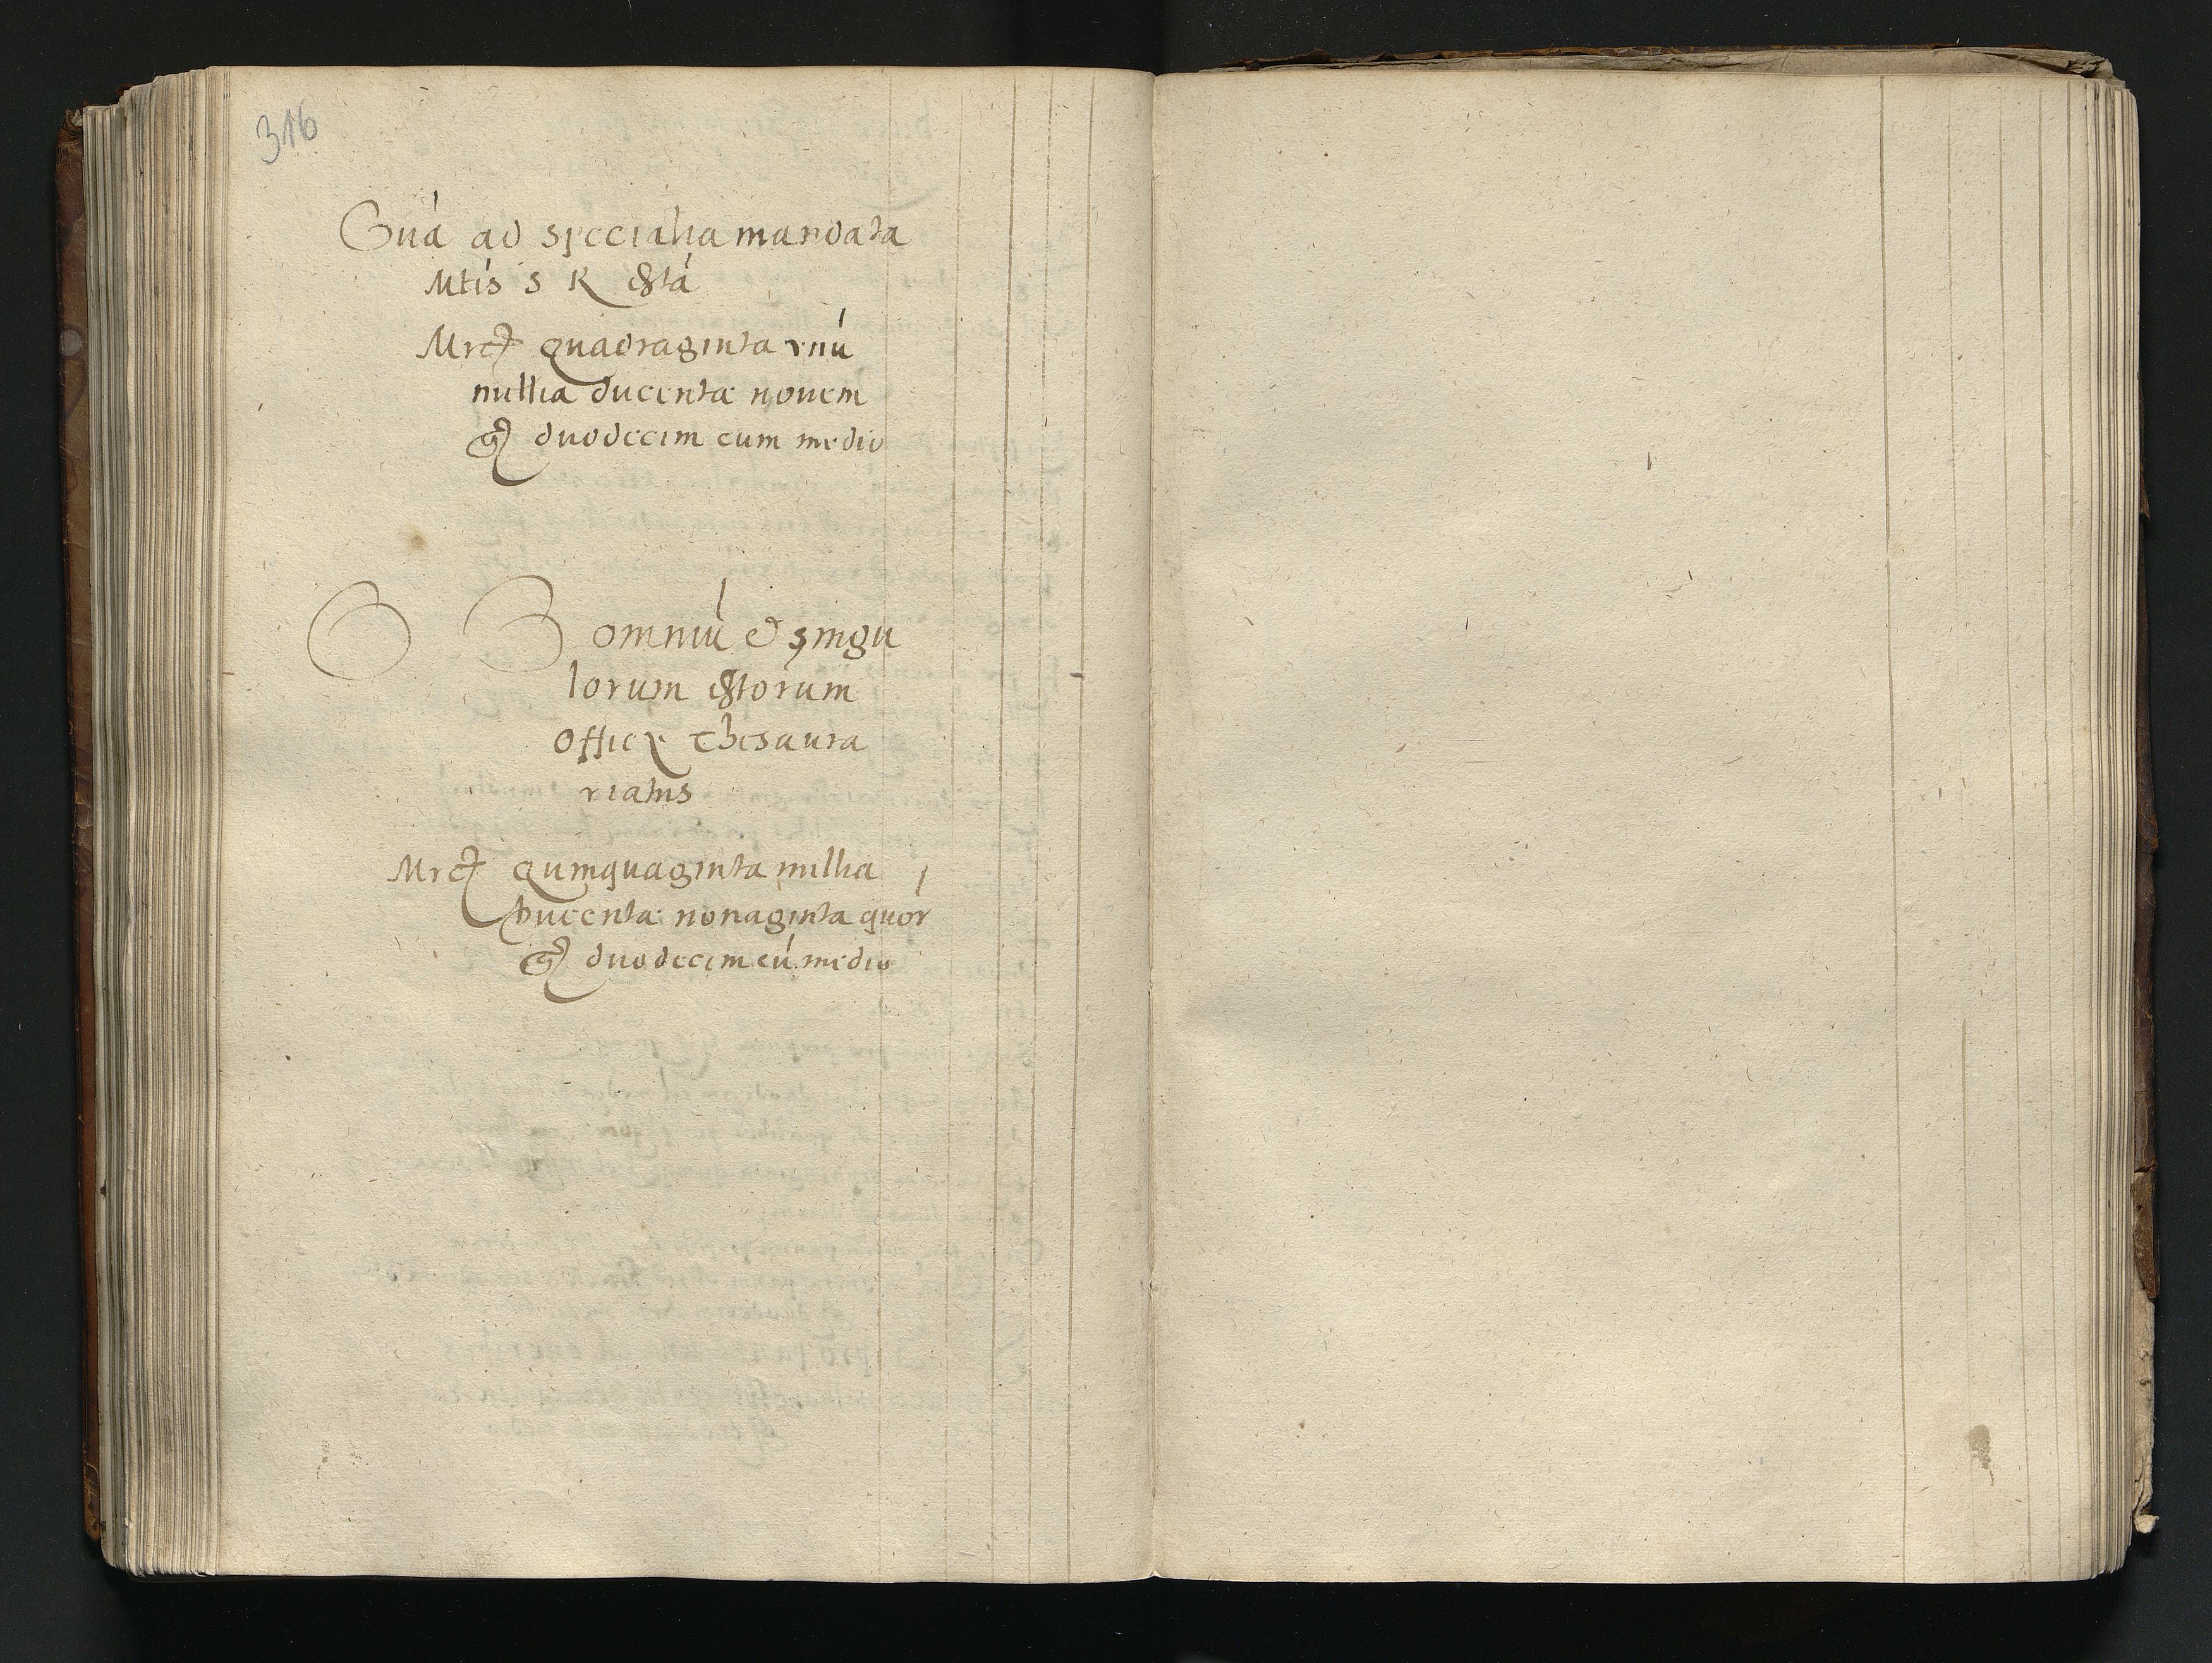 316
Sūa ad specialia mandata
Mtis S R
Mrc quadraginta vnū
millia ducenta novem
g duodecim cum medio
omniū et singu
lorum
offic thesaura
riatus
Mrc quinquaginta millia
ducenta nonaginta quor
g duodecim cū medio